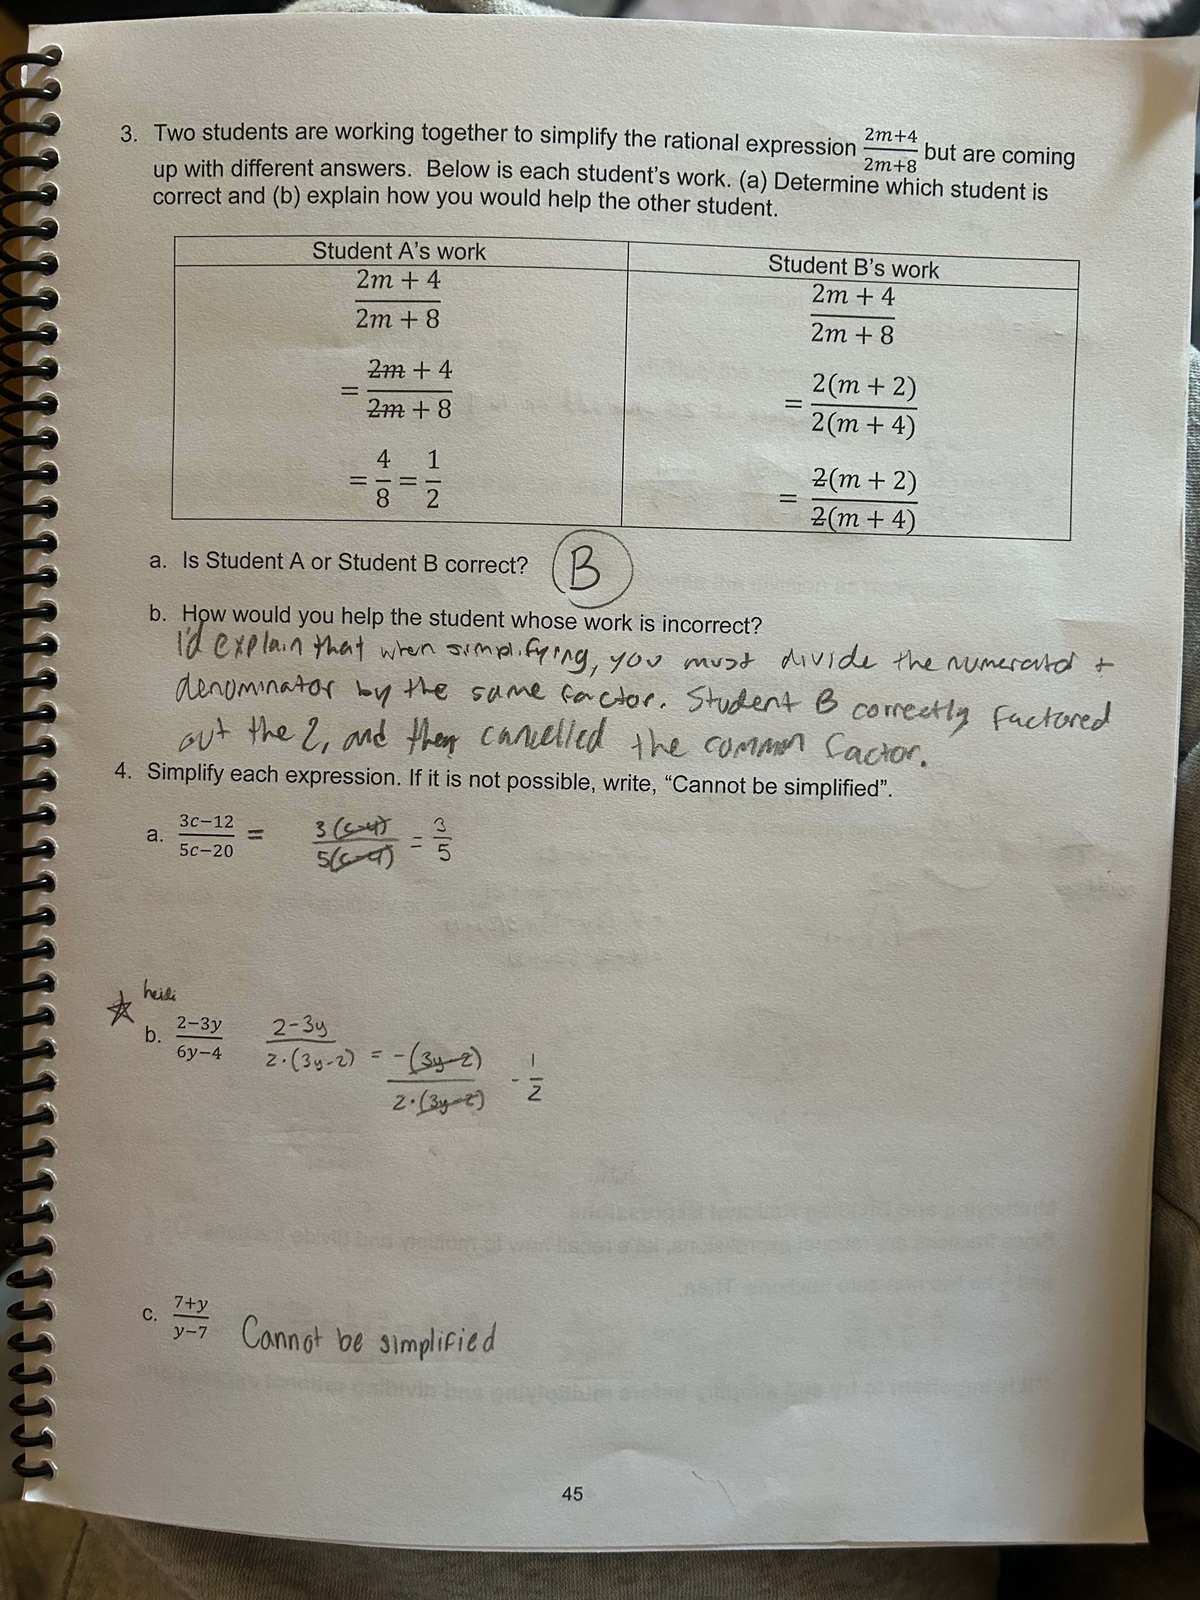 3. Two students are working together to simplify the rational expression 2m+4/2m+8 but are coming
up with different answers. Below is each student's work. (a) Determine which student is
correct and (b) explain how you would help the other student.
Student A's work
2m + 4
2m + 8
= 2m + 4
2m + 8
= 4/8 = 1/2
Student B's work
2m + 4
2m + 8
= 2(m + 2)
2(m + 4)
= 2(m + 2)
2(m + 4)
a. Is Student A or Student B correct? B
b. How would you help the student whose work is incorrect?
I'd explain that when simplifying, you must divide the numerator +
denominator by the same factor. Student B correctly factored
out the 2, and then cancelled the common factor.
4. Simplify each expression. If it is not possible, write, “Cannot be simplified”.
a. 3c−12/5c−20 = 3(c-4)/5(c-4) = 3/5
heidi
b. 2−3y/6y−4 2-3y/2·(3y-2) = -(3y-2)/2·(3y-2) -1/2
c. 7+y/y−7 Cannot be simplified
45